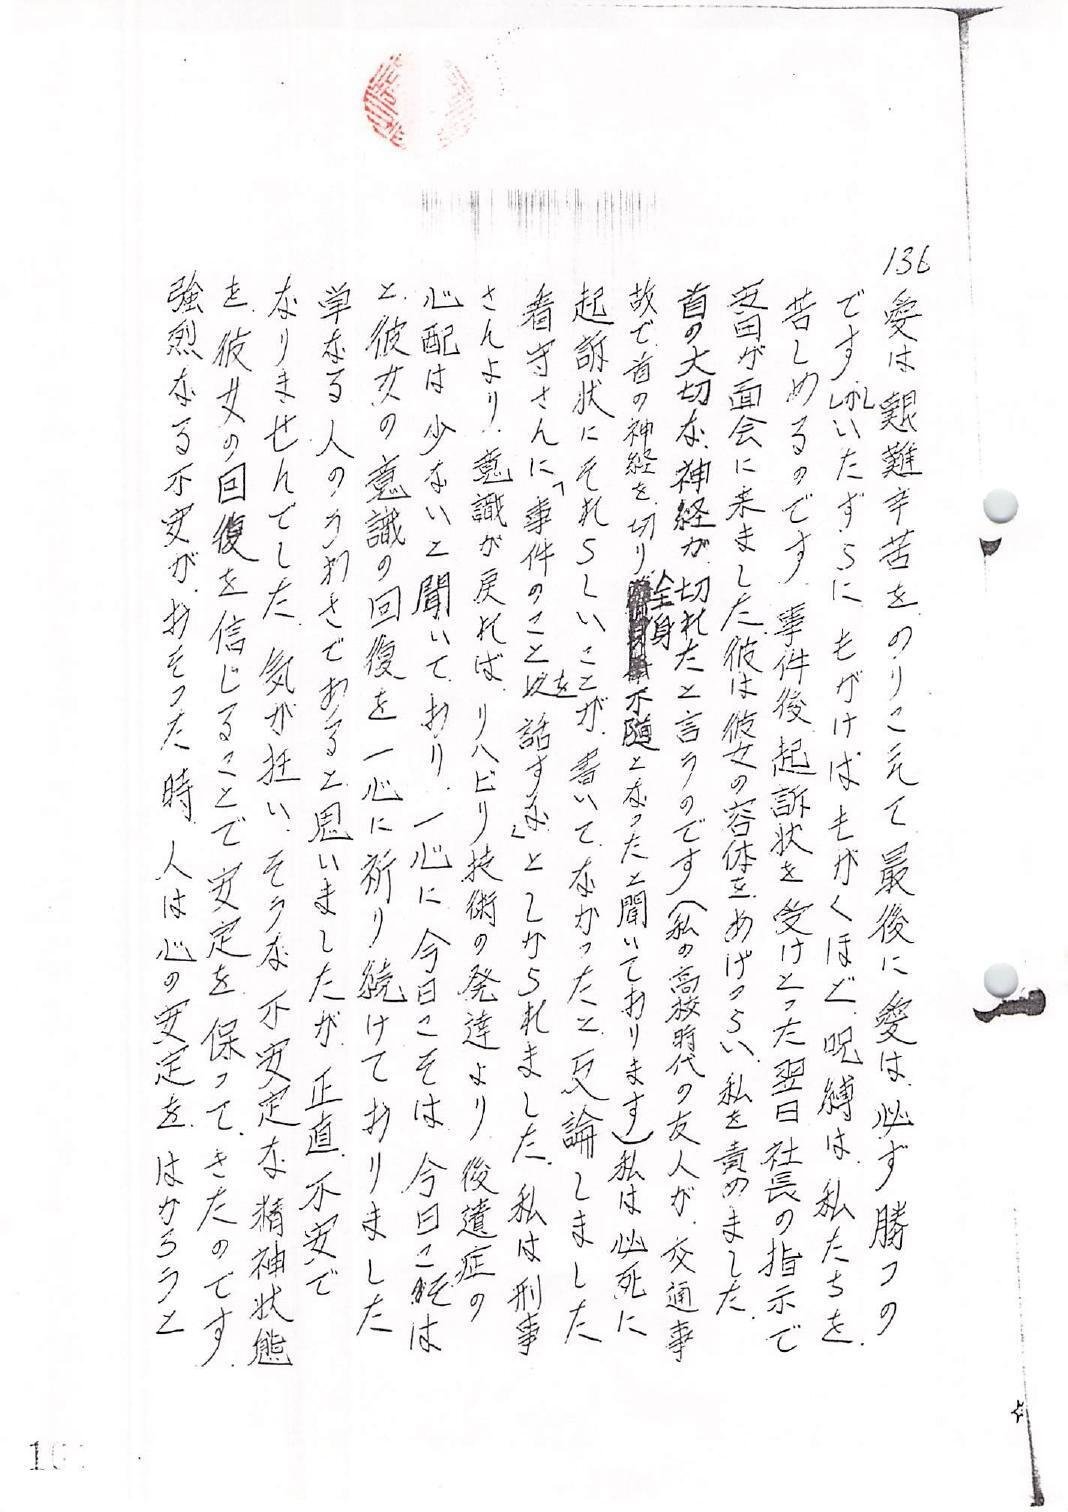 136
愛は艱難辛苦をのりこえて最後に愛は必ず勝つの
ですがしいたずらにもがけばもがくほど呪縛は私たちを
苦しめるのです 事件後起訴状を受けとった翌日社長の指示で
安田が面会に来ました 彼は彼女の容体をあげつらい、私を責めました
首の大切な神経が切れたと言うのです(私の高校時代の友人が交通事
故で首の神経を切り全身不随となったと聞いております)私は必死に
起訴状にそれらしいことが書いてなかったと反論しました
看守さんに「事件のことを話すな」としかられました、私は刑事
さんより意識が戻ればリハビリ技術の発達より後遺症の
心配は少ないと聞いており、一心に今日こそは今日こそは
と、彼女の意識の回復を一心に祈り続けておりました
単なる人のうわさであると思いましたが正直不安で
なりませんでした 気が狂いそうな不安定な精神状態
を彼女の回復を信じることで安定を保ってきたのです
強烈なる不安がおそった時 人は心の安定をはかろうと